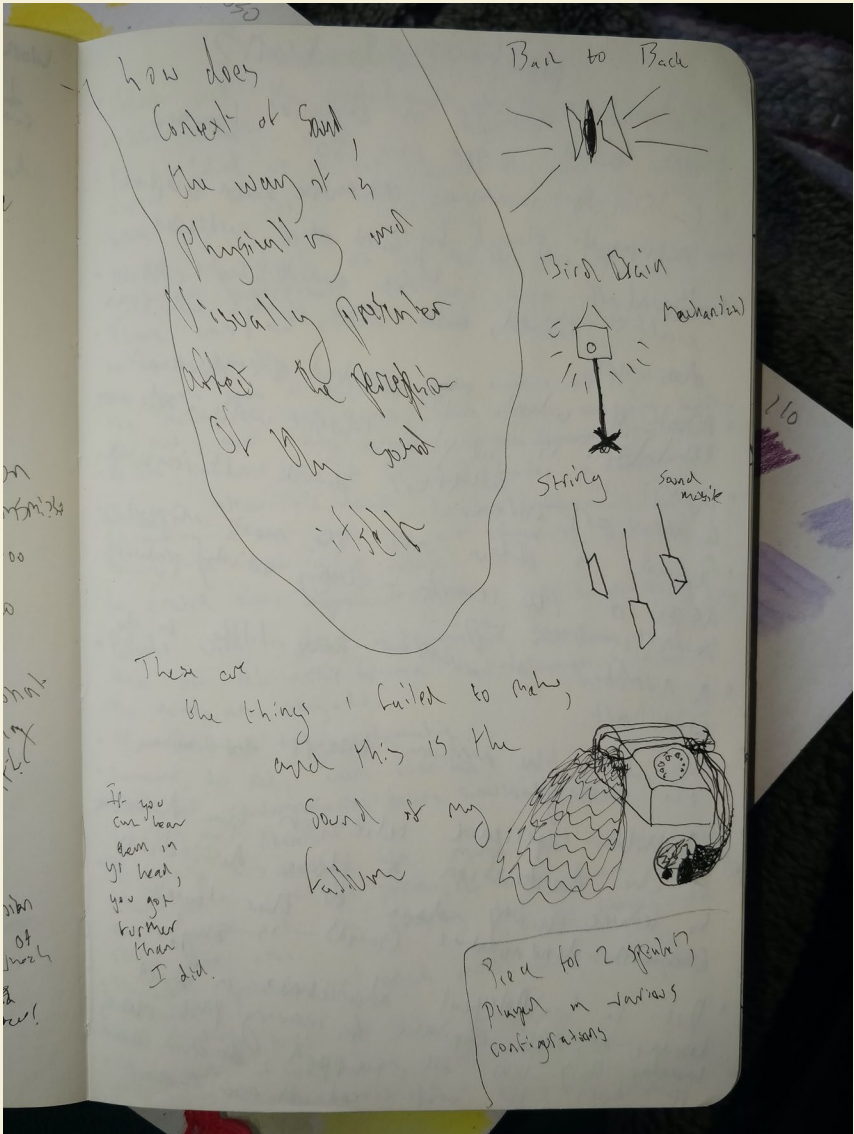 how does
Context of Sound,
the way it is
Physically and
Visually presenter
affect the perception
Of the sound
itself
Back to Back
Bird Brain
Mechanical
String
Sound
mobile
These are
the things I failed to make,
and this is the
Sound of my
failure
If you
can hear
them in
yr head,
you got
further
than
I did.
Piece for 2 speakers,
played in various
configurations